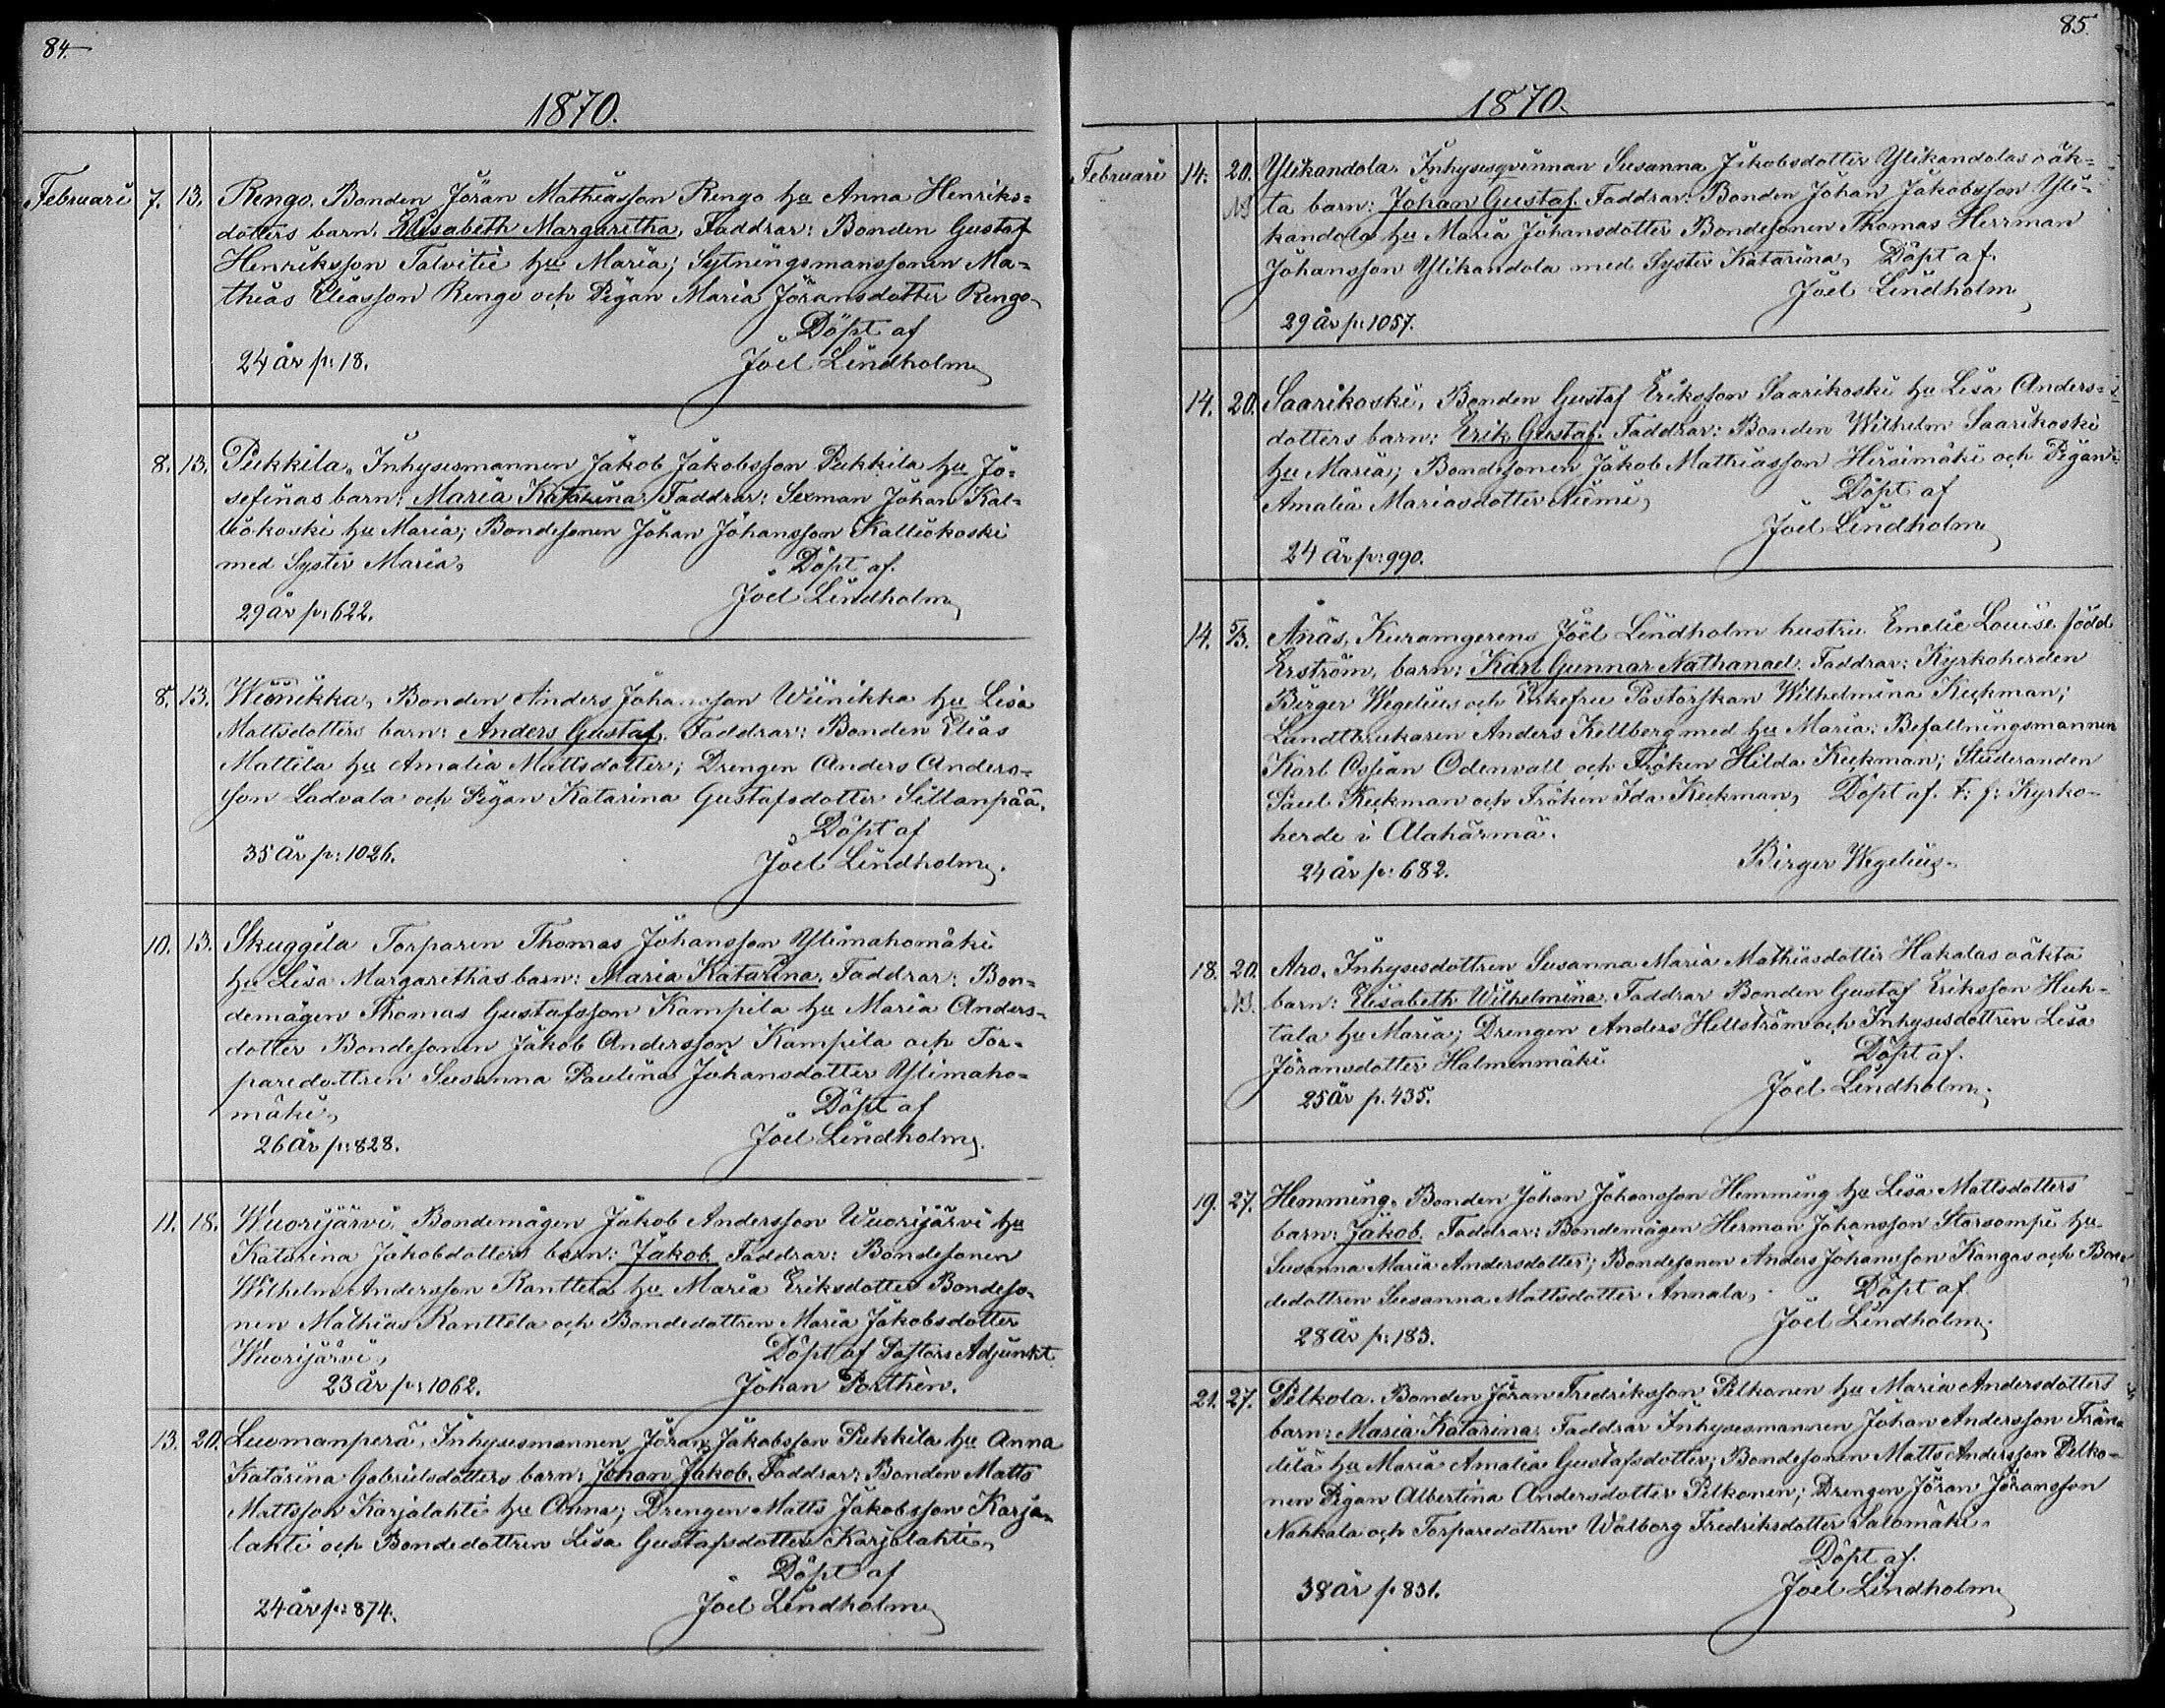 84.
1870.
Februari 7. 13. Rengo. Bonden Jöran Mathiasson Rengo hu Anna Henriks=
dotters barn: Elisabeth Margaretha, Faddrar: Bonden Gustaf
Henriksson Talvitie hu Maria; Sytningsmanssonen Ma=
thias Eliasson Rengo och Pigan Maria Jöransdotter Rengo
Döpt af
24 år p: 18. Joel Lindholm
8. 13. Pukkila, Inhysesmannen Jakob Jakobsson Pukkila hu Jo=
sefinas barn: Maria Katarina. Faddrar: Sexman Johan Kal=
liokoski hu Maria; Bondesonen Johan Johansson Kalliokoski
med Syster Maria,
Döpt af.
29 år p: 622. Joel Lindholm
8. 13. Wiinikka, Bonden Anders Johansson Wiinikka hu Lisa
Mattsdotters barn: Anders Gustaf, Faddrar: Bonden Elias
Mattila hu Amalia Mattsdotter; Drengen Anders Anders=
son Ladvala och Pigan Katarina Gustafsdotter Sillanpää.
Döpt af
35 år p: 1026. Joel Lindholm.
10. 13. Skuggila Torparen Thomas Johansson Ylimahomäki
hu Lisa Margarethas barn: Maria Katarina. Faddrar: Bon=
demågen Thomas Gustafsson Kampila hu Maria Anders=
dotter Bondesonen Jakob Andersson Kampila och Tor=
paredottren Susanna Paulina Johansdotter Ylimaho=
mäki, Döpt af
26 år p: 828. Joel Lindholm.
11. 18. Wuorijärvi, Bondemågen Jakob Andersson Wuorijärvi hu
Katarina Jakobdotters barn: Jakob. Faddrar: Bondesonen
Wilhelm Andersson Ranttila hu Maria Eriksdotter Bondeso=
nen Mathias Ranttila och Bondedottren Maria Jakobsdotter
Wuorijärvi, Döpt af Pastors Adjunkt
23 år p: 1062. Johan Porthén.
13. 20. Luomanperä, Inhysesmannen Jöran Jakobsson Pukkila hu Anna
Katarina Gabrielsdotters barn: Johan Jakob. Faddrar: Bonden Matts
Mattsson Karjalahti hu Anna; Drengen Matts Jakobsson Karja=
lahti och Bondedottren Lisa Gustafsdotter Karjalahti,
Döpt af
24 år p: 874. Joel Lindholm
85.
1870.
Februari 14. 20. Ylikandola. Inhysesqvinnan Susanna Jakobsdotter Ylikandolas oäk=
ta barn: Johan Gustaf. Faddrar: Bonden Johan Jakobsson Yli=
kandola hu Maria Johansdotter Bondesonen Thomas Herrman
Johansson Ylikandola med Syster Katarina, Döpt af.
Joel Lindholm
29 år p: 1057.
14. 20. Saarikoski, Bonden Gustaf Eriksson Saarikoski hu Lisa Anders=
dotters barn: Erik Gustaf. Faddrar: Bonden Wilhelm Saarikoski
hu Maria; Bondesonen Jakob Mathiasson Hirsimäki och Pigan
Amalia Mariasdotter Niemi,
Döpt af
Joel Lindholm
24 år p: 990.
14. 5/3. Ånäs, Kuramgerens Joel Lindholm hustru Emelie Louise född
Erström, barn: Karl Gunnar Nathanael. Faddrar: Kyrkoherden
Birger Wegelius och Enkefru Pastorskan Wilhelmina Keckman;
Landtbrukaren Anders Kellberg med hu Maria: Befallningsmannen
Karl Ossian Odenvall och Fröken Hilda Keckman; Studeranden
Paul Keckman och Fröken Ida Keckman, Döpt af. t: f: Kyrko-
herde i Alahärmä.
24 år p: 682. Birger Wegelius.
18. 20. Aro. Inhysesdottren Susanna Maria Mathiasdotter Hakalas oäkta
barn: Elisabeth Wilhelmina. Faddrar Bonden Gustaf Eriksson Huh=
tala hu Maria; Drengen Anders Hellström och Inhysesdottren Lisa
Jöransdotter Halmenmäki Döpt af.
25 år p. 435. Joel Lindholm.
19. 27. Hemming, Bonden Johan Johansson Hemming hu Lisa Mattsdotters
barn: Jakob. Faddrar: Bondemågen Herman Johansson Storsompi hu
Susanna Maria Andersdotter; Bondesonen Anders Johansson Kangas och Bon=
dedottren Susanna Mattsdotter Annala, Döpt af
28 år p: 183. Joel Lindholm.
21. 27. Pelkola. Bonden Jöran Fredriksson Pelkonen hu Maria Andersdotters
barn: Maria Katarina: Faddrar Inhysesmannen Johan Andersson Frän=
dilä hu Maria Amalia Gustafsdotter; Bondesonen Matts Andersson Pelko=
nen Pigan Albertina Andersdotter Pelkonen; Drengen Jöran Jöransson
Nahkala och Torparedottren Walborg Fredriksdotter Salomäki.
Döpt af.
38 år p 831. Joel Lindholm